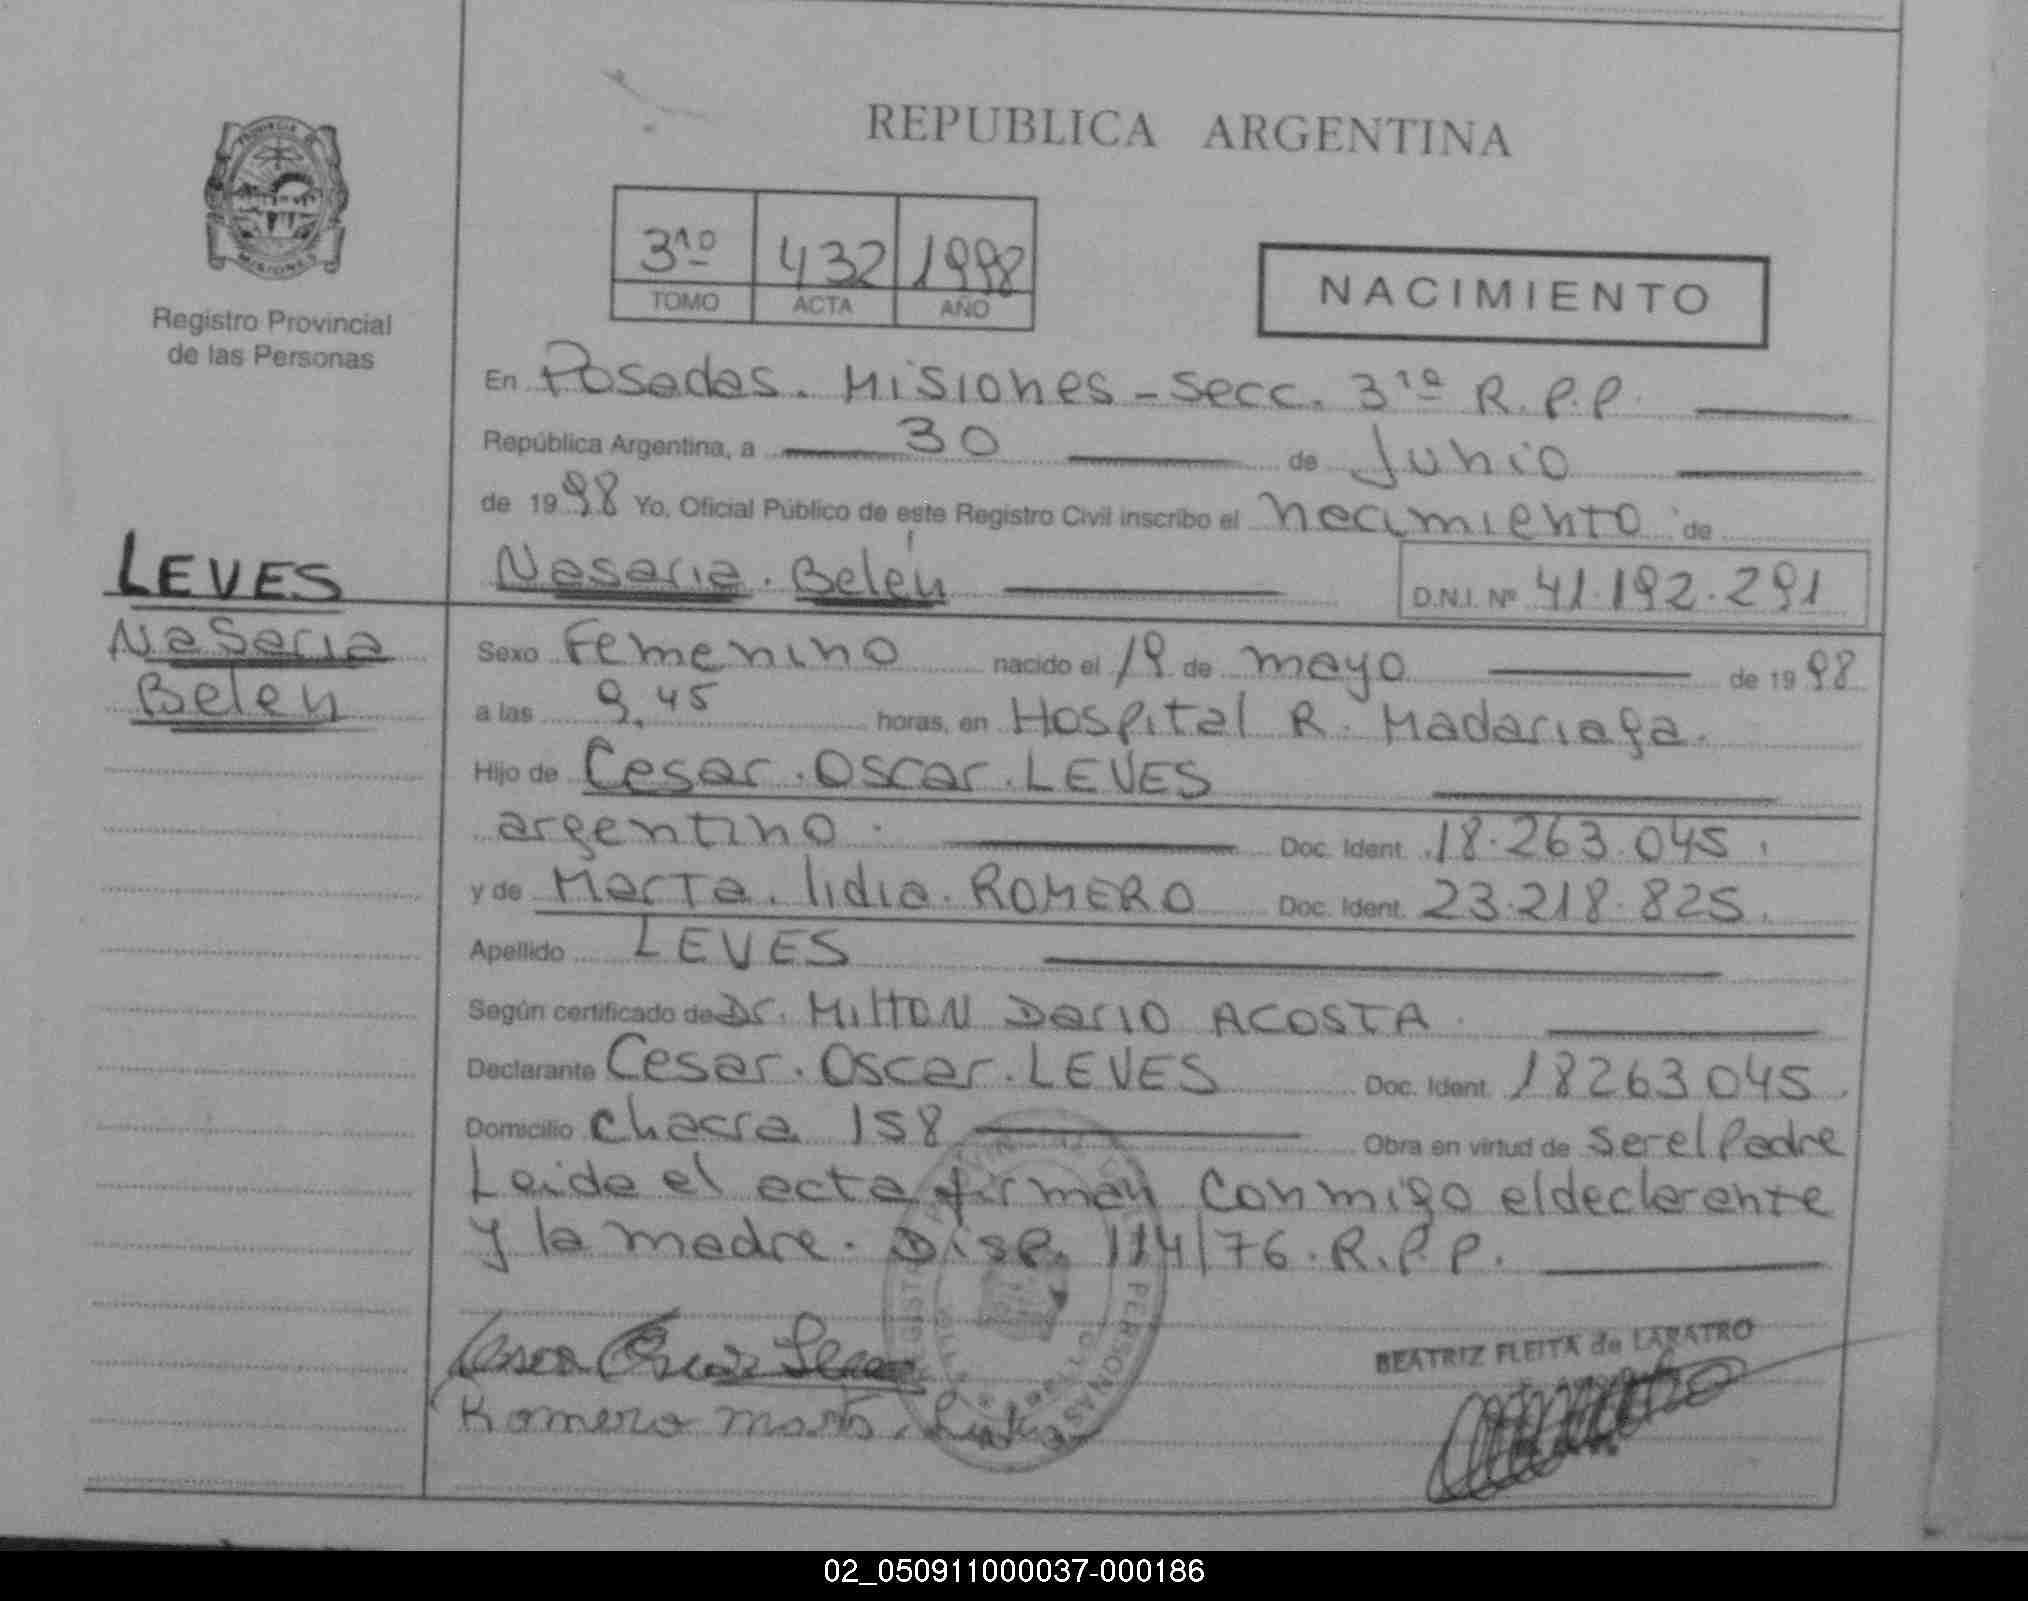 REPUBLICA ARGENTINA
PROVINCIA
MISIONES
Registro Provincial
de las Personas
3ro 432 1998
TOMO ACTA AÑO
NACIMIENTO
En Posadas. Misiones - Secc. 3ra R.P.P.
República Argentina, a 30 de Junio
de 1998 Yo, Oficial Público de este Registro Civil inscribo el nacimiento de
LEVES
Nasaria. Belén D.N.I. Nº 41.192.291
Nasaria
Belen
Sexo Femenino nacido el 19 de mayo de 1998
a las 9,45 horas, en Hospital R. Madariaga.
Hijo de Cesar. Oscar. LEVES
argentino. Doc. Ident. 18.263.045.
y de Marta. lidia. ROMERO Doc. Ident. 23.218.825.
Apellido LEVES
Según certificado de Dr. Milton Dario ACOSTA
Declarante Cesar. Oscar. LEVES Doc. Ident. 18263045.
Domicilio chacra 158 Obra en virtud de ser el Padre
Leida el acta firman conmigo el declarente
y la madre. Disp. 114/76. R.P.P.
BEATRIZ FLEITA de LABATRO
Romero
02_050911000037-000186